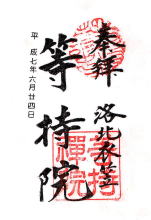 奉拝
洛北衣笠
等持院
平成七年六月廿四日